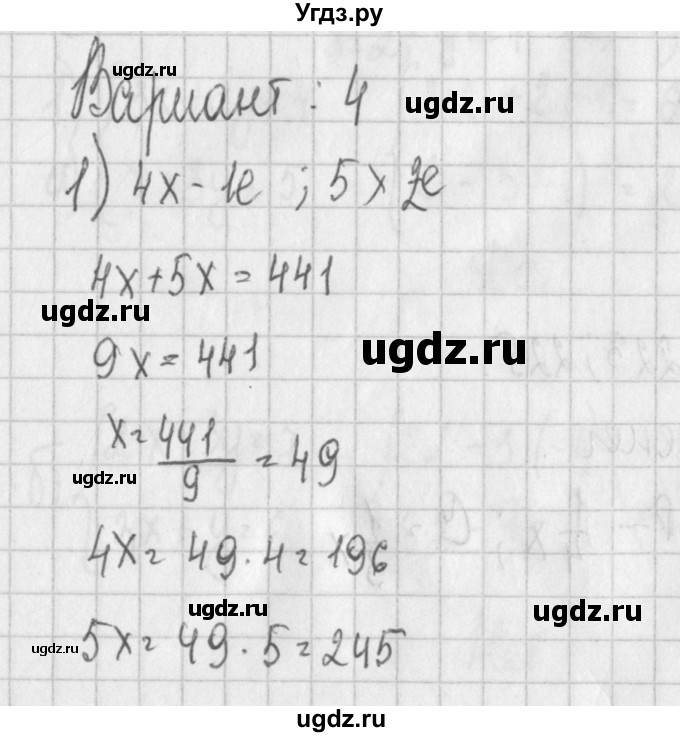 Угдз.ру
ugdz.ru
Вариант: 4
ugdz.ru
1) 4x - 1е ; 5x 2е
4x+5x=441
ugdz.ru
9x=441
ugdz.ru
x=441/9=49
ugdz.ru
4x=49·4=196
ugdz.ru
ugdz.ru
5x=49·5=245
ugdz.ru
ugdz.ru